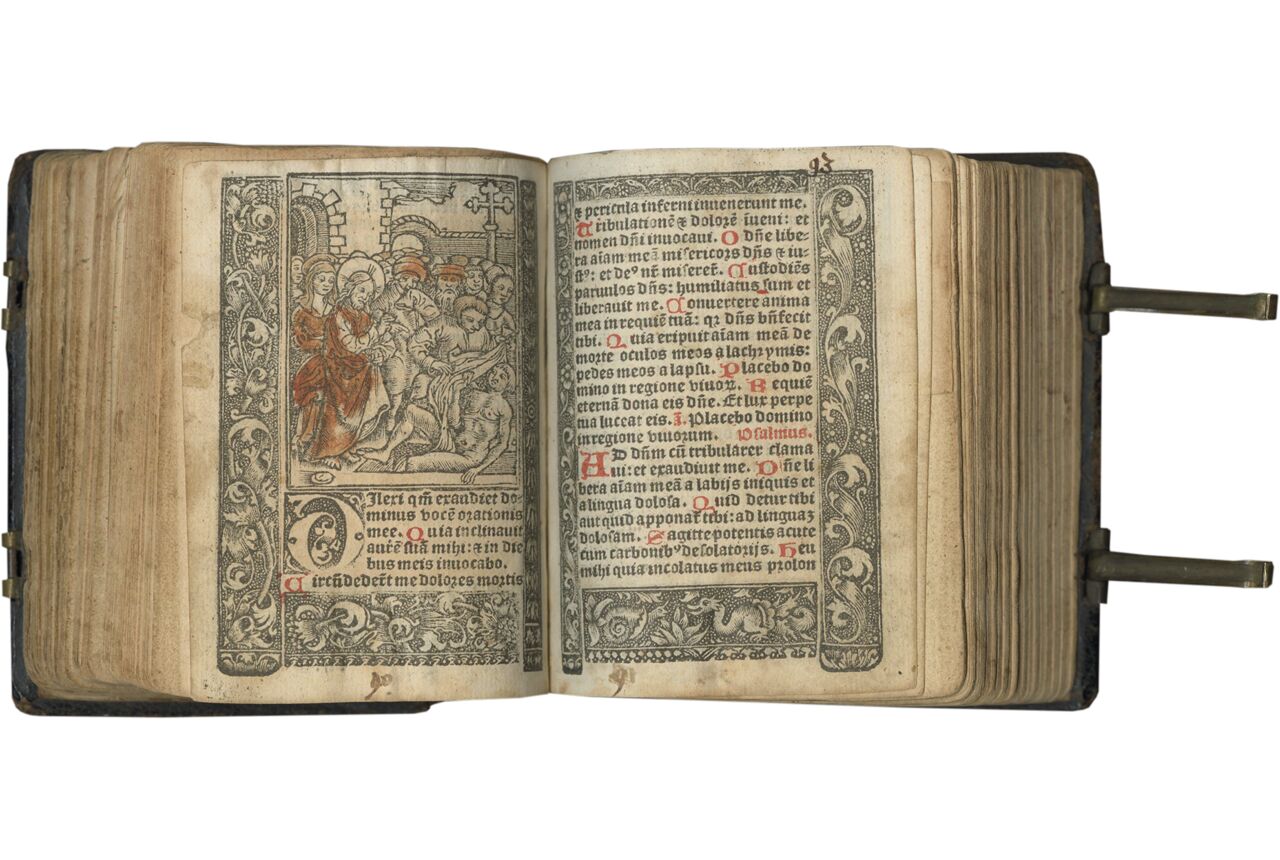 Dilexi qm̄ exaudiet do-
minus vocē orationis
mee. Quia inclinauit
aurē suā mihi: ⁊ in die
bus meis inuocabo.
Circūdederūt me dolores mortis
90
93
⁊ pericula inferni inuenerunt me.
Tribulationē ⁊ dolorē iueni: et
nomen dn̄i inuocaui. O dn̄e libe-
ra aīam meā misericors dn̄s ⁊ iu-
stꝰ: et deꝰ nr̄ miseret̄. Custodiēs
paruulos dn̄s: humiliatus sum et
liberauit me. Conuertere anima
mea in requiē tuā: qꝛ dn̄s bn̄fecit
tibi. Quia eripuit aīam meā de
morte oculos meos a lachrymis:
pedes meos a lapsu. Placebo do
mino in regione viuoꝝ. Requiē
eternā dona eis dn̄e. Et lux perpe
tua luceat eis. Placebo domino
in regione viuorum. Psalmus.
AD dn̄m cū tribularer clama
ui: et exaudiuit me. Dn̄e li
bera aīam meā a labijs iniquis et
a lingua dolosa. Quid detur tibi
aut quid apponat̄ tibi: ad linguaꝫ
dolosam. Sagitte potentis acute
cum carbonibꝰ desolatorijs. Heu
mihi quia incolatus meus prolon
91